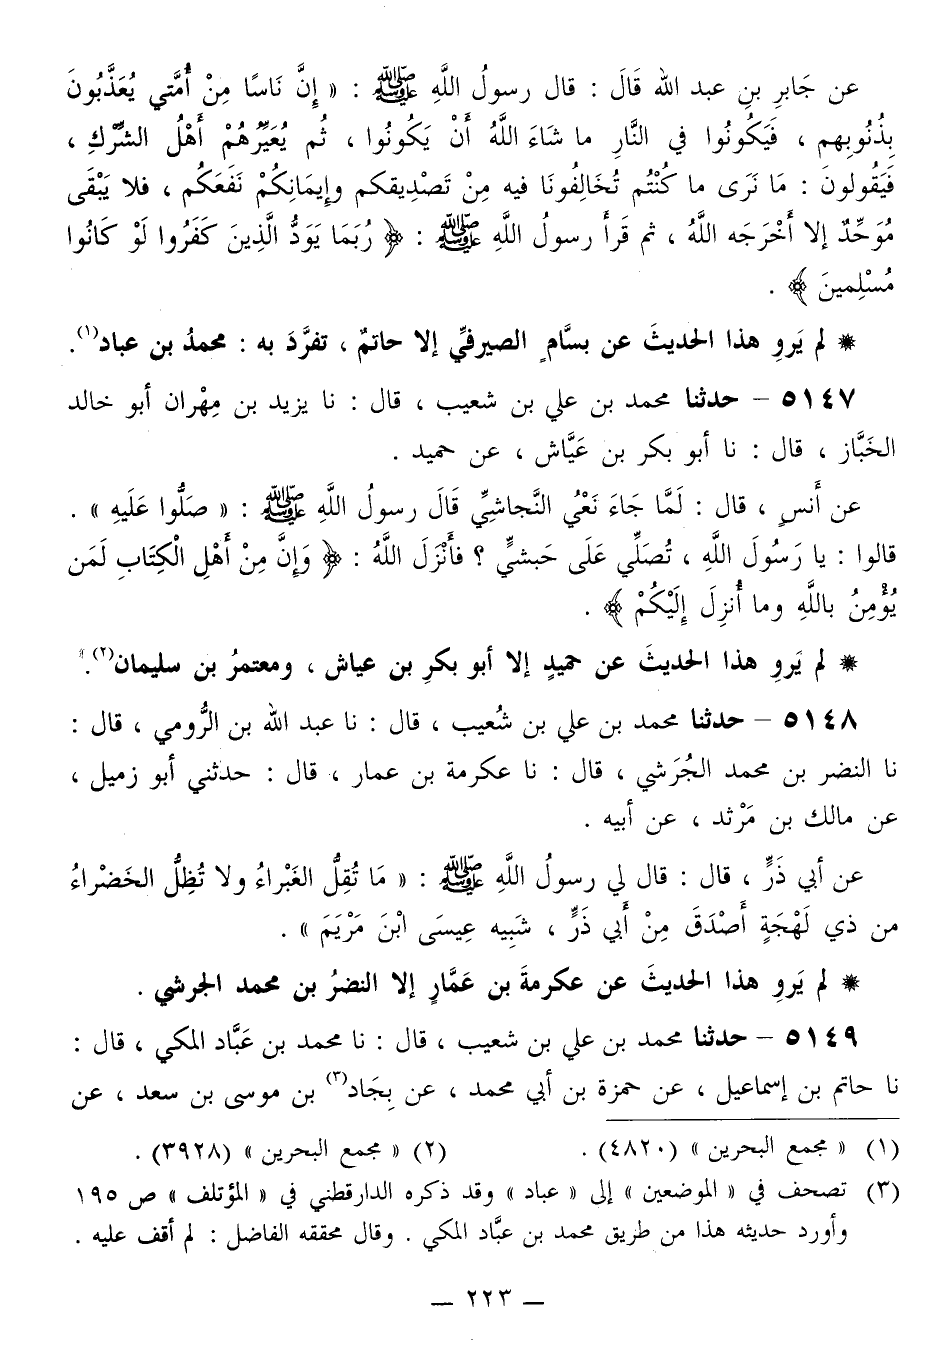 عن جَابرِ بنِ عبد الله قَالَ : قال رسولُ اللَّهِ ﷺ : « إِنَّ نَاسًا مِنْ أُمَّتي يُعَذَّبُونَ
بِذُنُوبِهم ، فَيَكُونُوا في النَّارِ ما شَاءَ اللَّهُ أَنْ يَكُونُوا ، ثُم يُعَيِّرُهُمْ أَهْلُ الشِّرْكِ ،
فَيَقُولونَ : مَا نَرَى ما كُنْتُم تُخَالِفُونَا فيه مِنْ تَصْدِيقكم وإِيمَانِكُمْ نَفَعَكُم ، فلا يَبْقَى
مُوَحِّدٌ إلا أَخْرَجَه اللَّهُ ، ثم قَرأَ رسولُ اللَّهِ ﷺ : ﴿ رُبَمَا يَوَدُّ الَّذِينَ كَفَرُوا لَوْ كَانُوا
مُسْلِمينَ ﴾ .
* لم يَروِ هذا الحديثَ عن بسَّامٍ الصيرفيِّ إلا حاتمٌ ، تفرَّدَ به : محمدُ بن عباد(١).
٥١٤٧ – حدثنا محمد بن علي بن شعيب ، قال : نا يزيد بن مِهْران أبو خالد
الخَبَّاز ، قال : نا أبو بكر بن عَيَّاش ، عن حميد .
عن أَنسٍ ، قال : لَمَّا جَاءَ نَعْيُ النَّجاشِيِّ قَالَ رسولُ اللَّهِ ﷺ : « صَلُّوا عَلَيهِ » .
قالوا : يا رَسُولَ اللَّهِ ، تُصَلِّي عَلَى حَبشيٍّ ؟ فأَنْزَلَ اللَّهُ : ﴿ وَإِنَّ مِنْ أَهْلِ الْكِتَابِ لَمَن
يُؤْمِنُ باللَّهِ وما أُنزِلَ إِلَيْكُمْ ﴾ .
* لم يَروِ هذا الحديثَ عن حميدٍ إلا أبو بكرِ بن عياش ، ومعتمرُ بن سليمان(٢).
٥١٤٨ – حدثنا محمد بن علي بن شُعيب ، قال : نا عبد الله بن الرُّومي ، قال :
نا النضر بن محمد الجُرَشي ، قال : نا عكرمة بن عمار ، قال : حدثني أبو زميل ،
عن مالك بن مَرْثد ، عن أبيه .
عن أبي ذَرٍّ ، قال : قال لي رسولُ اللَّهِ ﷺ : « مَا تُقِلُّ الغَبْراءُ ولا تُظِلُّ الخَضْراءُ
من ذي لَهْجَةٍ أَصْدَقَ مِنْ أَبي ذَرٍّ ، شَبِيه عِيسَى ابْنَ مَرْيَمَ » .
* لم يَروِ هذا الحديثَ عن عكرمةَ بن عَمَّارٍ إلا النضرُ بن محمد الجرشي .
٥١٤٩ – حدثنا محمد بن علي بن شعيب ، قال : نا محمد بن عَبَّاد المكي ، قال :
نا حاتم بن إسماعيل ، عن حمزة بن أبي محمد ، عن بِجَاد(٣) بن موسى بن سعد ، عن
(١) « مجمع البحرين » (٤٨٢٠) . (٢) « مجمع البحرين » (٣٩٢٨) .
(٣) تصحف في « الموضعين » إلى « عباد » وقد ذكره الدارقطني في « المؤتلف » ص ١٩٥
وأورد حديثه هذا من طريق محمد بن عبَّاد المكي . وقال محققه الفاضل : لم أقف عليه .
– ٢٢٣ –